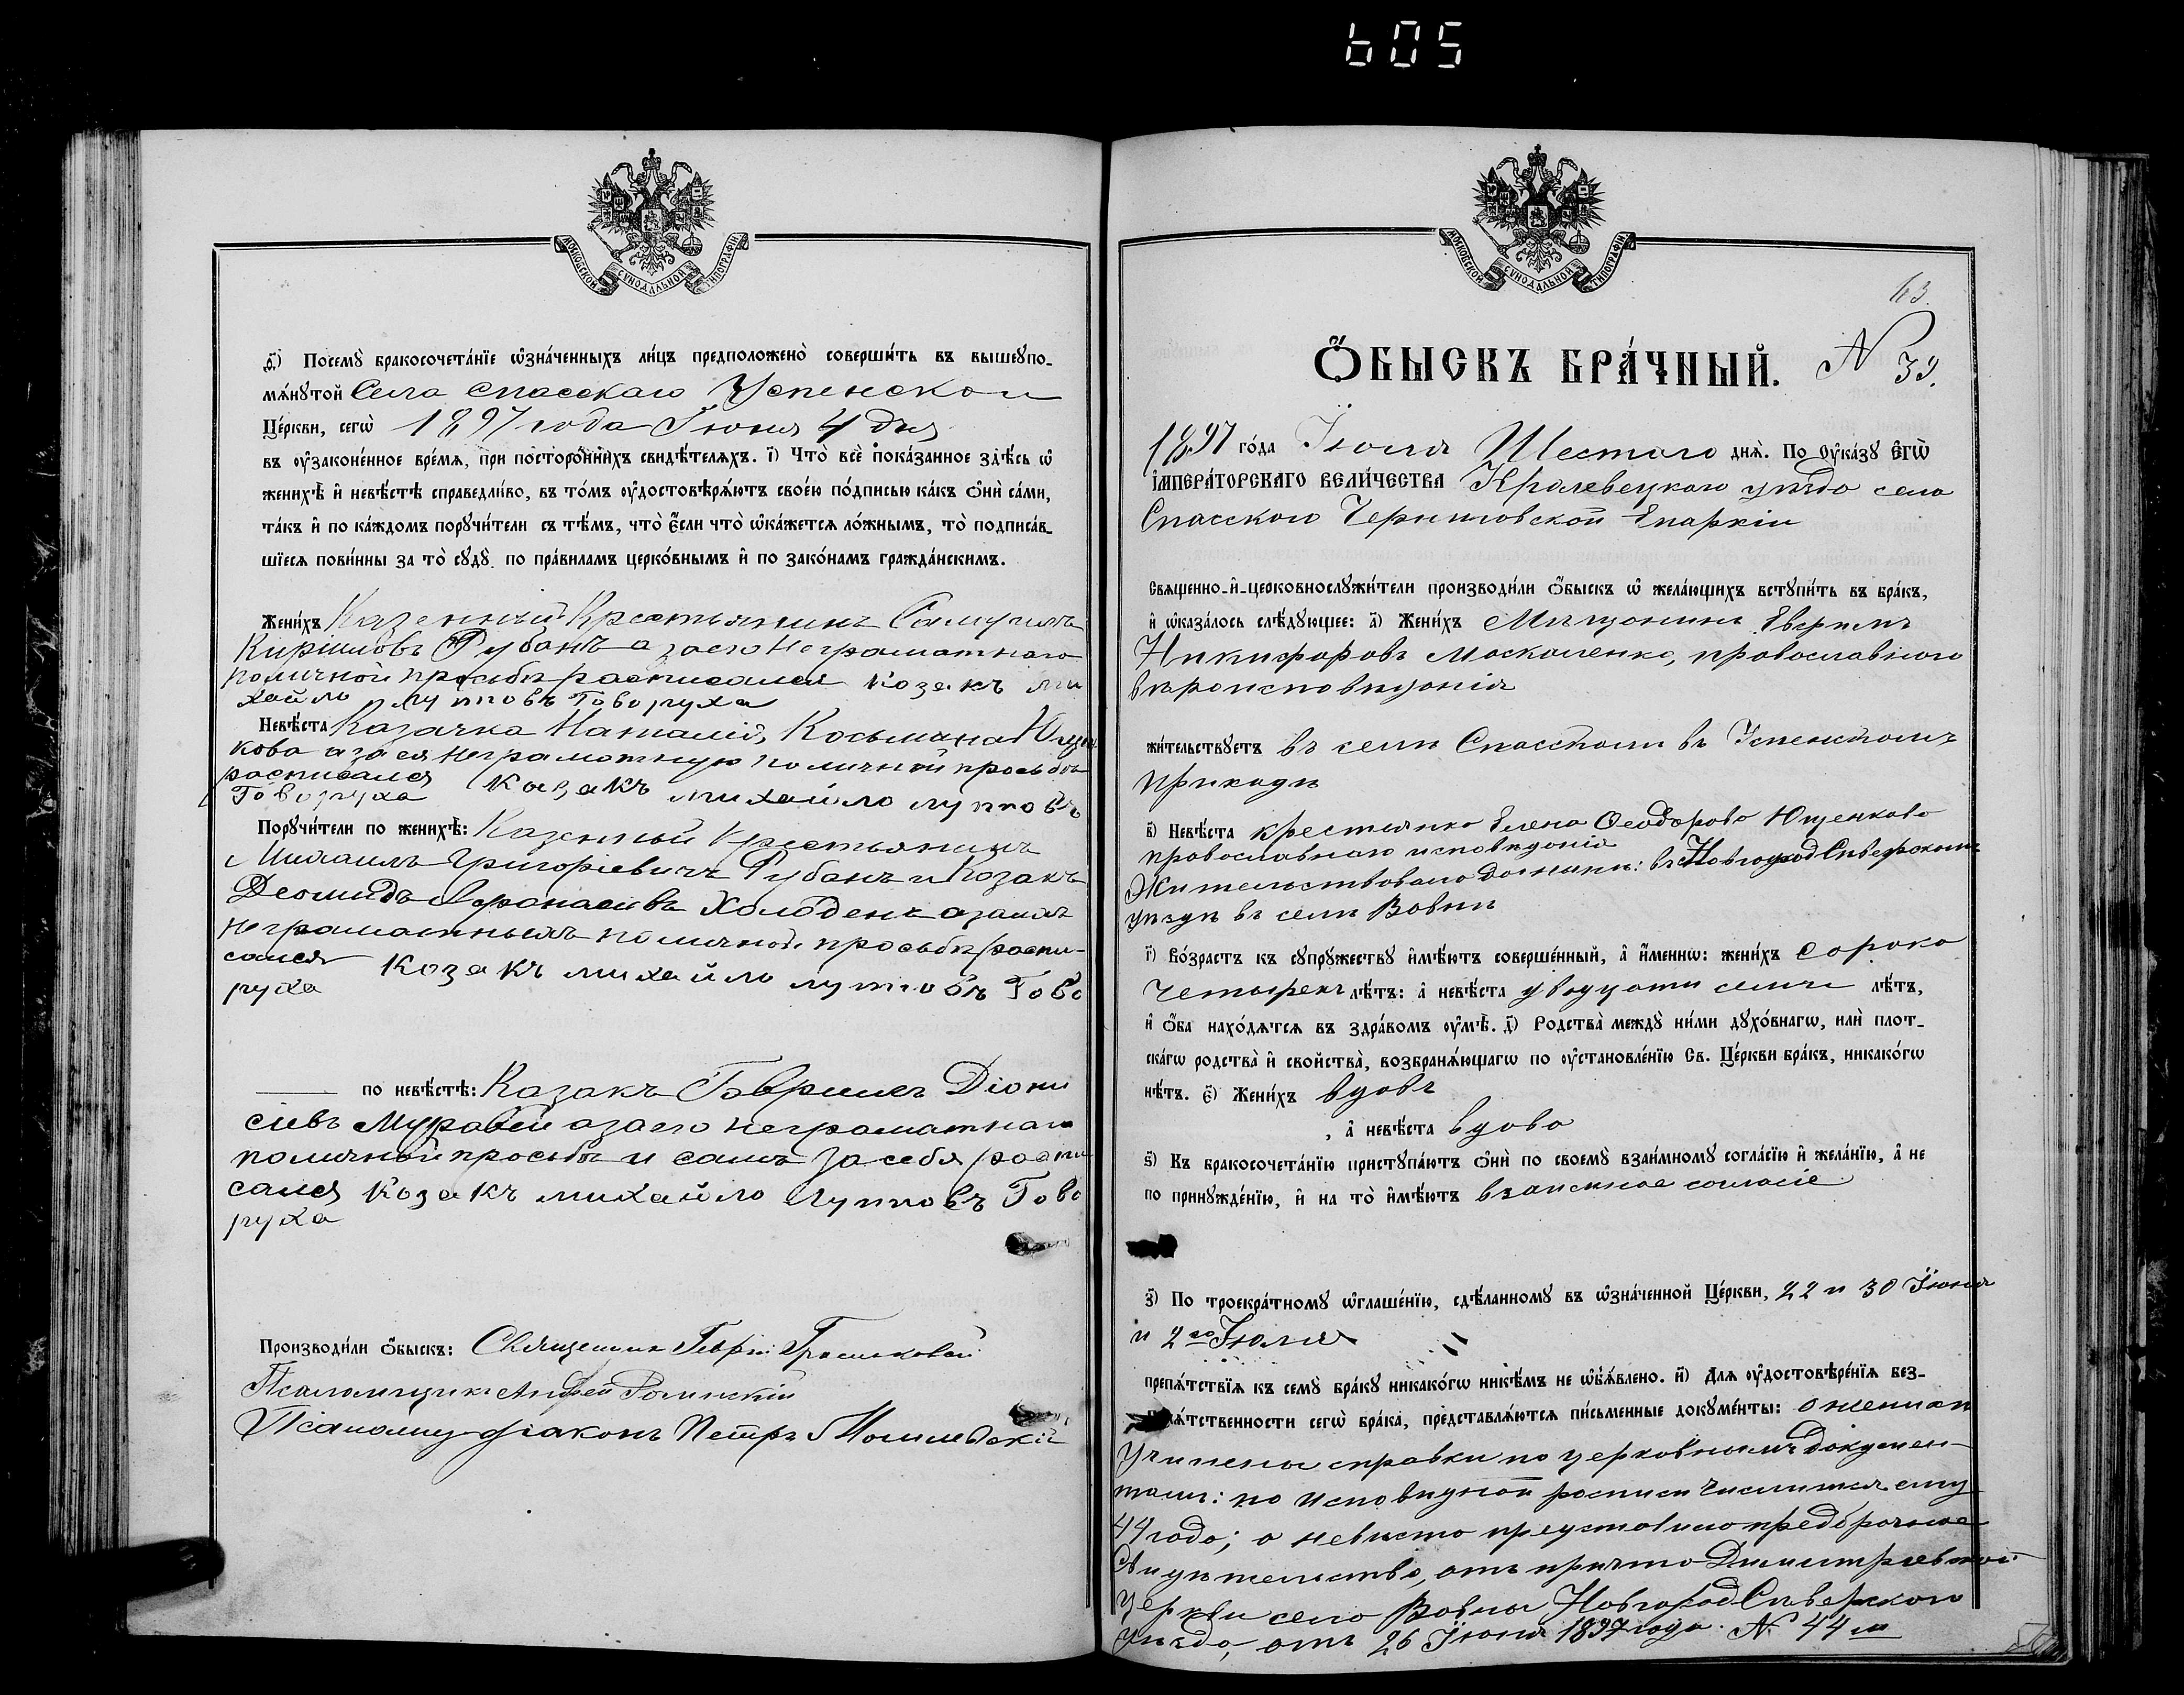 605
МОСКОВСКОЙ СѴНОДАЛЬНОЙ ТИПОГРАФІИ
ѳ҃) Посемꙋ̀ бракосочета́нїе ѡ҆зна́ченныхъ ли́цъ предположено̀ соверши́ть въ вышеꙋпо-
мѧ́нꙋтой Села Спасскаго Успенской
Це́ркви, сегѡ̀ 1897 года Іюня 4 дня
въ ᲂу҆законе́нное вре́мѧ, при посторо́ннихъ свидѣ́телѧхъ. і҃) Что̀ всѐ пока́занное здѣ́сь ѡ҆
женихѣ̀ и҆ невѣ́стѣ справедли́во, въ то́мъ ᲂу҆достовѣрѧ́ютъ свое́ю по́дписью ка́къ ѻ҆нѝ са́ми,
та́къ и҆ по ка́ждомъ порꙋчи́тели съ тѣ́мъ, что̀ є҆́сли что̀ ѡ҆ка́жетсѧ ло́жнымъ, то̀ подписа́в-
шїесѧ пови́нны за то̀ сꙋдꙋ̀ по пра́виламъ церко́внымъ и҆ по зако́намъ гражда́нскимъ.
Жени́хъ Казенный Крестьянинъ Самуилъ
Кириловъ Рубанъ а за его неграмотнаго
по личной просьбѣ расписался Козакъ Ми
хайло Луптовъ Говоруха
Невѣ́ста Казачка Наталія Косьмина Ющен
кова а за ея неграмотную по личной просьбѣ
расписался Козакъ Михайло Луптовъ
Говоруха
Порꙋчи́тели по женихѣ̀: Казенный Крестьянинъ
Михаилъ Григоріевичъ Рубанъ и Козакъ
Деомидъ Афанасіевъ Холоденъ а за ихъ
неграмотныхъ по личной просьбѣ распи-
сался Козакъ Михайло Луптовъ Гово
руха
по невѣ́стѣ: Казакъ Гавріилъ Діони
сіевъ Муравей а за его неграматнаго
по личной просьбѣ и самъ за себя распи
сался Козакъ Михайло Луптовъ Гово
руха
Производи́ли ѻ҆́быскъ: Священникъ
Псаломщикъ Андрей
Псаломщ діаконъ Петръ
МОСКОВСКОЙ СѴНОДАЛЬНОЙ ТИПОГРАФІИ
63.
Ѻ҆́БЫСКЪ БРА́ЧНЫЙ. N 39.
1897 го́да Іюля Шестого днѧ̀. По ᲂу҆ка́зꙋ Є҆ГѠ̀
І҆МПЕРА́ТОРСКАГО ВЕЛИ́ЧЕСТВА Кролевецкаго уѣзда села
Спасскаго Черниговской Епархіи
Свѧщенно-и҆-церковнослꙋжи́тели производи́ли ѻ҆́быскъ ѡ҆ жела́ющихъ встꙋпи́ть въ бра́къ,
и҆ ѡ҆каза́лось слѣ́дꙋющее: а҃) Жени́хъ Мѣщанинъ
Никифоровъ Москаленко, православнаго
вѣроисповѣданія
жи́тельствꙋетъ въ селѣ Спасскомъ въ Успенскомъ
приходѣ
в҃) Невѣ́ста крестьянка Елена Ѳеодорова Ющенкова
православнаго исповѣданія
Жительствовала донынѣ: въ Новгородсѣверскомъ
уѣздѣ въ селѣ Вовнѣ
г҃) Во́зрастъ къ сꙋпрꙋ́жествꙋ и҆мѣ́ютъ соверше́нный, а҆ и҆́менно: жени́хъ сорока
четырехъ лѣ́тъ: а҆ невѣ́ста двадцати семи лѣ́тъ,
и҆ ѻ҆́ба нахо́дѧтсѧ въ здра́вомъ ᲂу҆мѣ̀. д҃) Родства̀ междꙋ̀ ни́ми дꙋхо́внагѡ, илѝ плот-
ска́гѡ родства̀ и҆ сво́йства, возбранѧ́ющагѡ по ᲂу҆становле́нїю Св. Це́ркви бра́къ, никако́гѡ
нѣ́тъ. є҃) Жени́хъ вдовъ
, а҆ невѣ́ста вдова
ѕ҃) Къ бракосочета́нїю пристꙋпа́ютъ ѻ҆нѝ по своемꙋ̀ взаи́мномꙋ согла́сїю и҆ жела́нїю, а҆ не
по принꙋжде́нїю, и҆ на то̀ и҆мѣ́ютъ взаимное согласіе
з҃) По троекра́тномꙋ ѡ҆глаше́нїю, сдѣ́ланномꙋ въ ѡ҆зна́ченной Це́ркви, 22 и 30 Іюня
и 2го Іюля
препѧ́тствїѧ къ семꙋ̀ бра́кꙋ никако́гѡ никѣ́мъ не ѡ҆б̾ѧ́влено. и҃) Длѧ ᲂу҆достовѣре́нїѧ без-
пѧ́тственности сегѡ̀ бра́ка, представлѧ́ютсѧ пи́сьменные докꙋме́нты: о женихѣ
учинены справки по церковнымъ докумен-
тамъ: по исповѣдной росписи числится ему
44 года; а невѣста представила предбрачное
свидѣтельство, отъ причта Димитріевской
церкви села Вовны Новгородсѣверскаго
уѣзда, отъ 26 Іюня 1897 года N 44 м